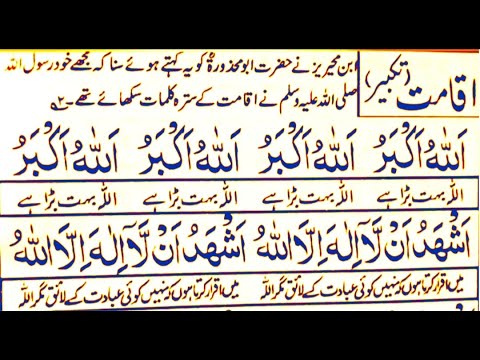 اقامت (تکبیر)
ابن محیریز نے حضرت ابو محذورہؓ کو یہ کہتے ہوئے سنا کہ مجھے خود رسول اللہ
صلی اللہ علیہ وسلم نے اقامت کے سترہ کلمات سکھائے تھے۔۲
اَللّٰهُ اَكْبَرُ اَللّٰهُ اَكْبَرُ اَللّٰهُ اَكْبَرُ اَللّٰهُ اَكْبَرُ
اللہ بہت بڑا ہے اللہ بہت بڑا ہے اللہ بہت بڑا ہے اللہ بہت بڑا ہے
اَشْهَدُ اَنْ لَّآ اِلٰهَ اِلَّا اللّٰهُ اَشْهَدُ اَنْ لَّآ اِلٰهَ اِلَّا اللّٰهُ
میں اقرار کرتا ہوں کہ نہیں کوئی عبادت کے لائق مگر اللہ میں اقرار کرتا ہوں کہ نہیں کوئی عبادت کے لائق مگر اللہ